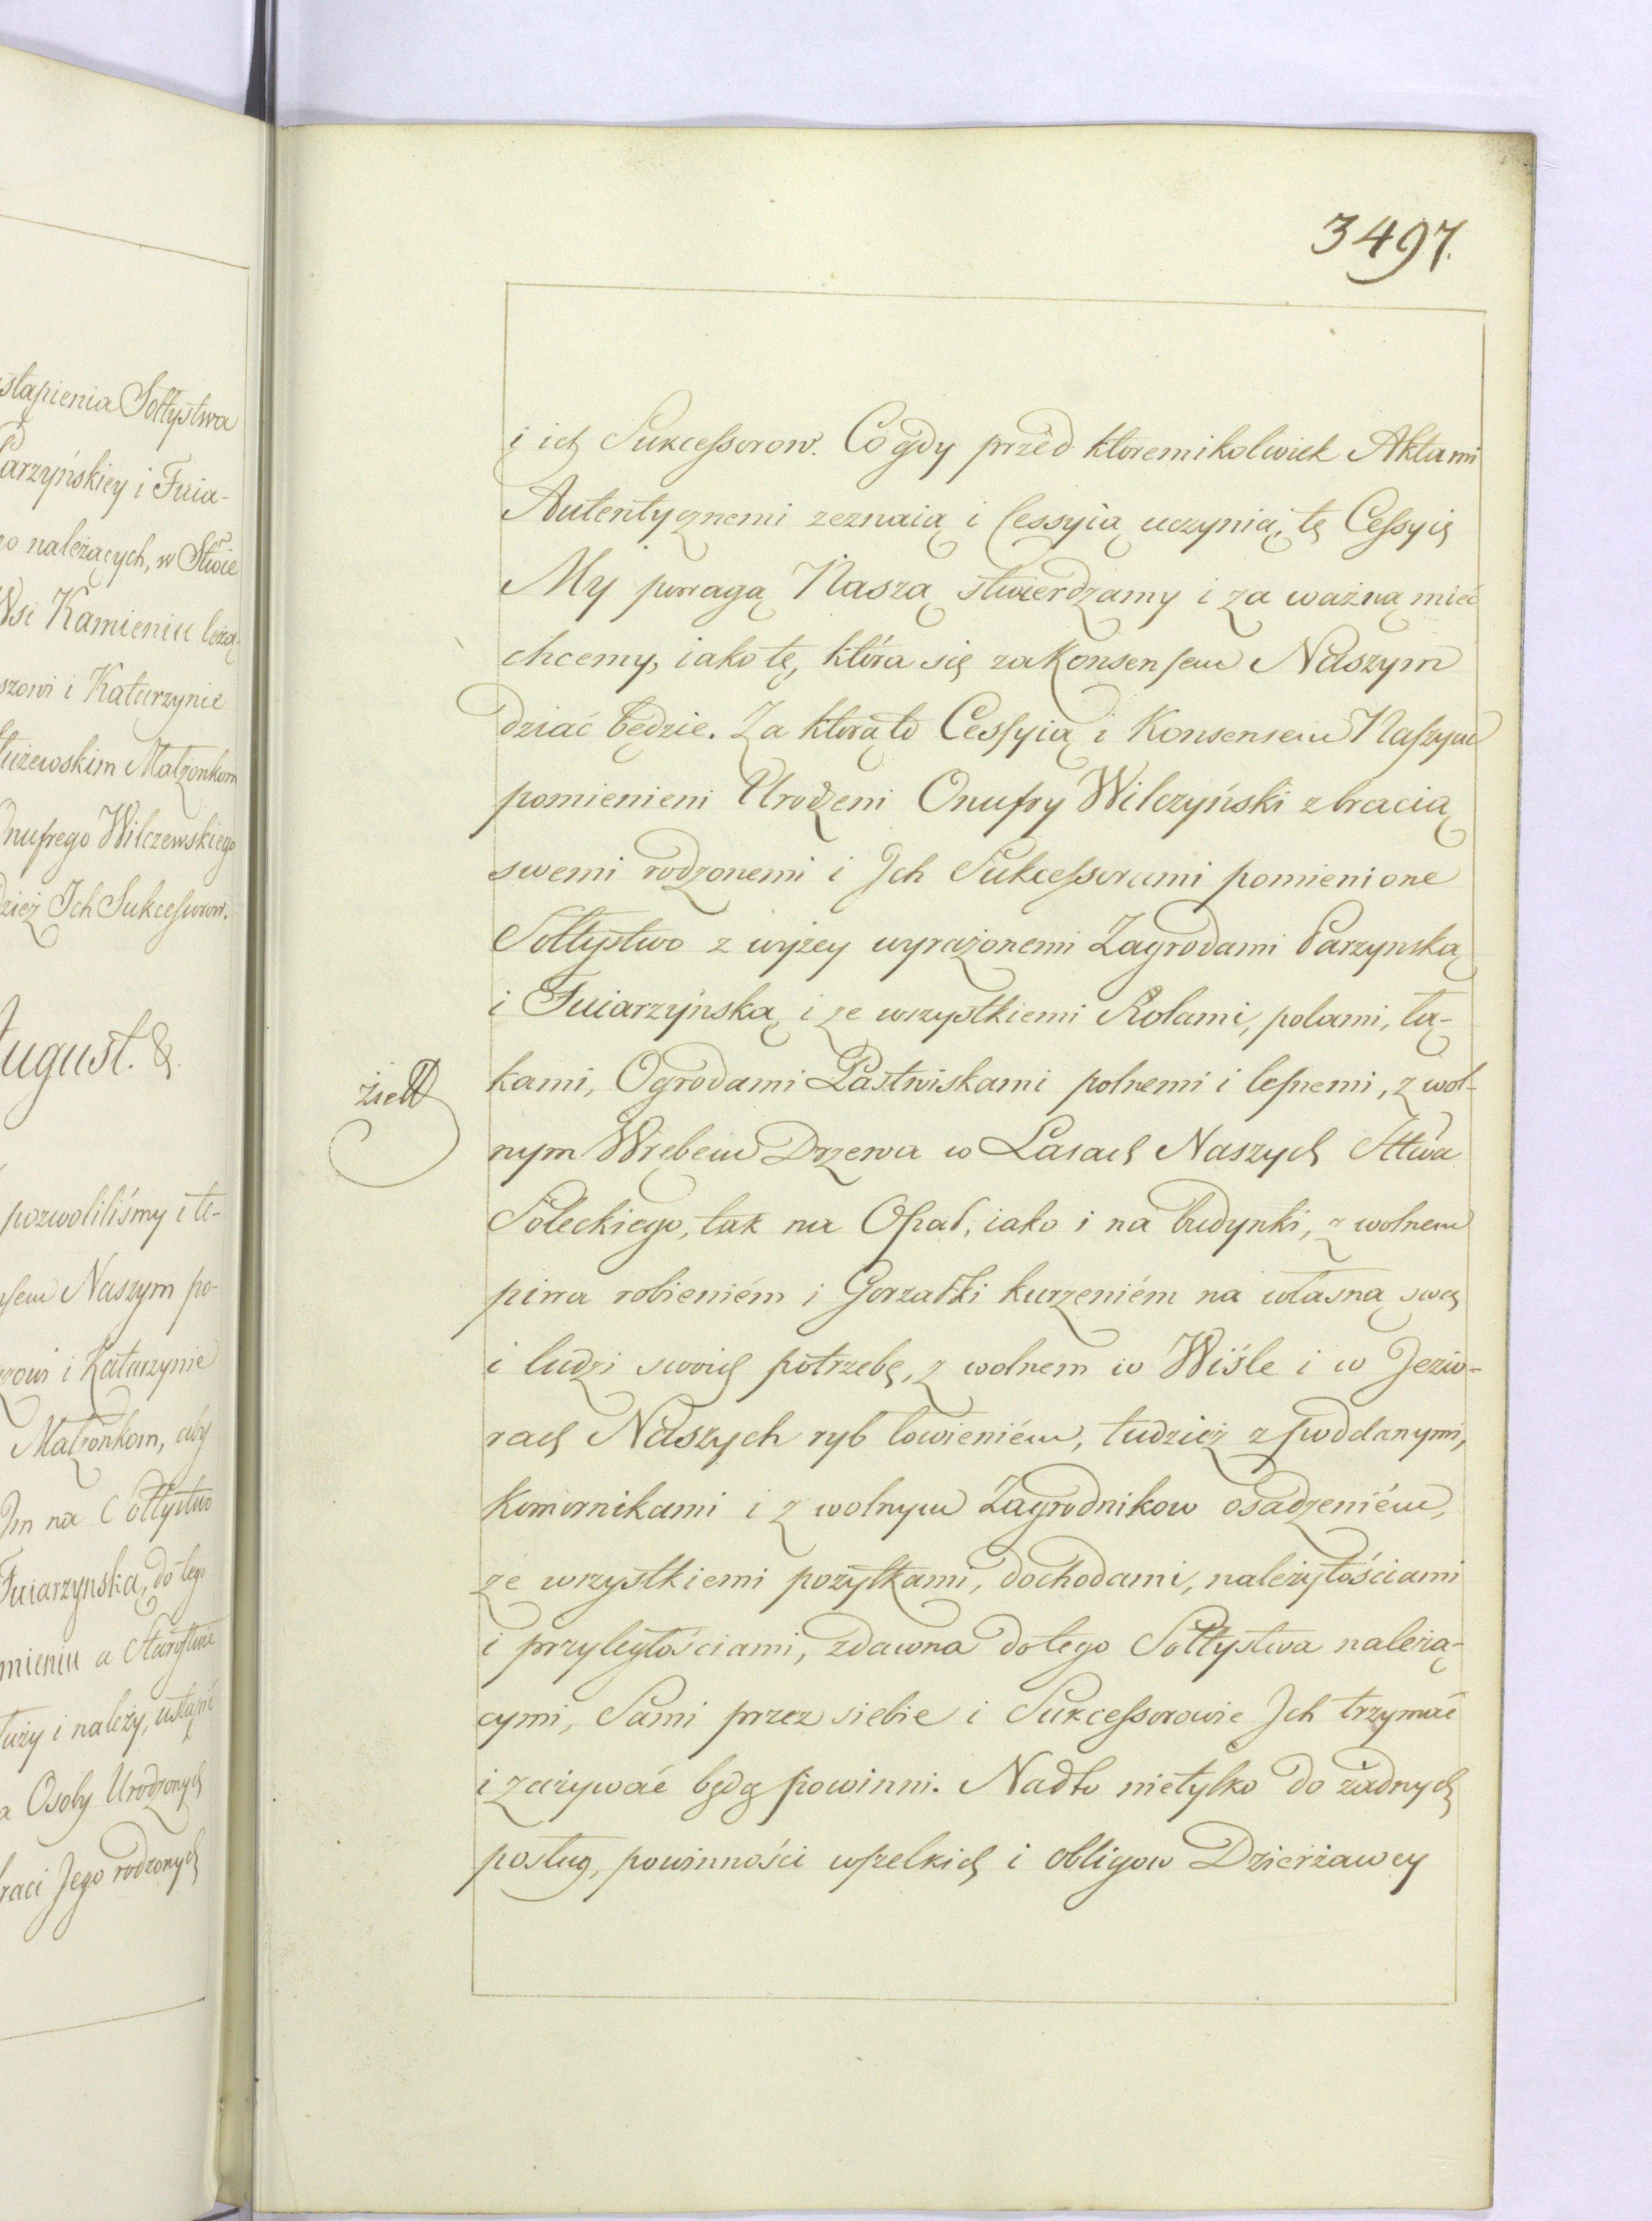 stąpienia Sołtystwa
Parzyńskiey i Fuia-
należących, w Stwie
Wsi Kamieniu leżą-
szowi i Katarzynie
Małzonkom
Onufrego Wilczewskiego
dzież Ich Sukcessorow.
August. &.
pozwoliliśmy i te-
sem Naszym po-
szowi i Katarzynie
Małzonkom, aby
Im na Sołtystwo
Fuiarzynską, do tego
mieniu a Starostwie
i należy, ustąpić
a Osoby Urodzonych
braci Jego rodzonych
3497.
i ich Sukcessorow. Co gdy przed ktoremikolwiek Aktami
Autentycznemi zeznaią i Cessyią uczynią, tę Cessyię
My powagą Naszą stwierdzamy i za ważną mieć
chcemy, iako tę, która się za Konsensem Naszym
dziać będzie. Za ktorą to Cessyią i Konsensem Naszym
pomienieni Urodzeni Onufry Wilczyński z bracią
swemi rodzonemi i Ich Sukcessorami pomienione
Sołtystwo z wyżey wyrażonemi Zagrodami Parzynską
i Fuiarzyńską i ze wszystkiemi Rolami, polami, łą-
kami, Ogrodami Pastwiskami polnemi i leśnemi, z wol-
nym Wrębem Drzewa w Lasach Naszych Sttwa
Soleckiego, tak na Opał, iako i na budynki, z wolnem
piwa robieniém i Gorzałki kurzeniém na własną swą
i ludzi swoich potrzebę, z wolnem w Wiśle i w Jezio-
rach Naszych ryb łowieniém, tudzież z poddanymi,
Komornikami i z wolnym Zagrodnikow osadzeniém,
ze wszystkiemi pożytkami, dochodami, należytościami
i przyległościami, zdawna do tego Sołtystwa należą-
cymi, Sami przez siebie i Sukcessorowie Ich trzymać
i zażywać będą powinni. Nadto nietylko do żadnych
posług, powinności wszelkich i obligow Dzierżawcy